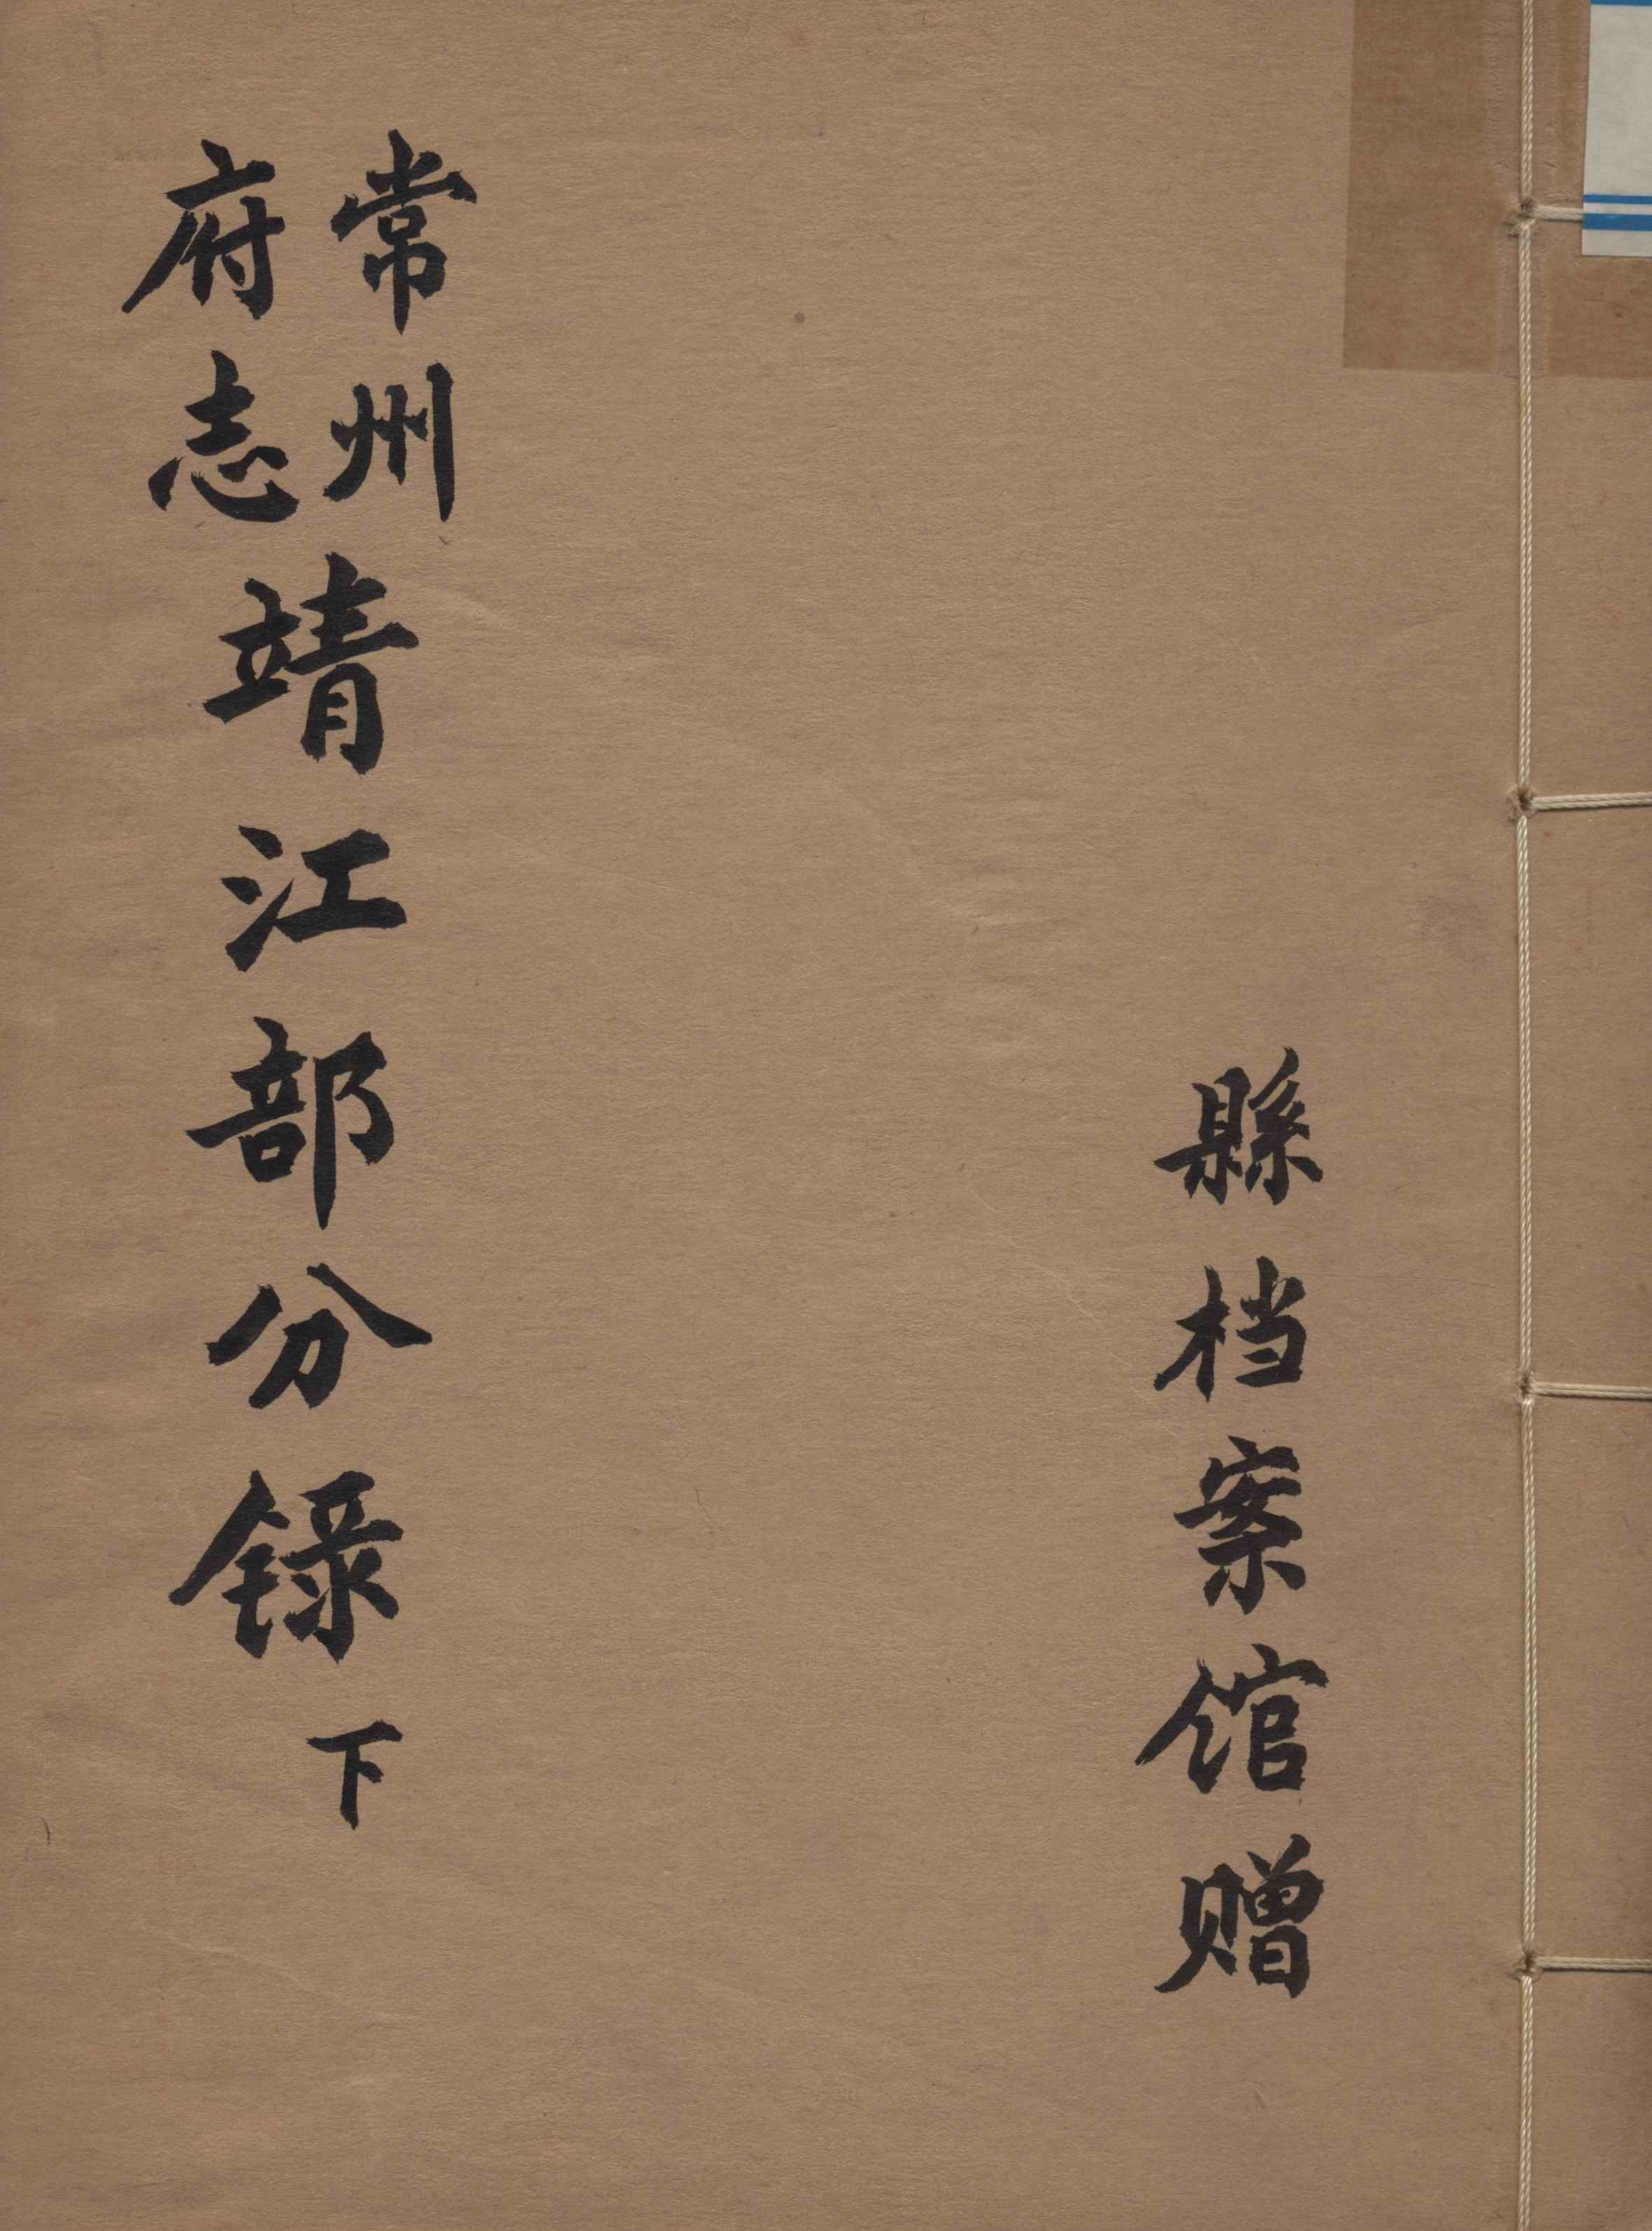 縣档案馆赠
常州
府志
靖江部分錄
下